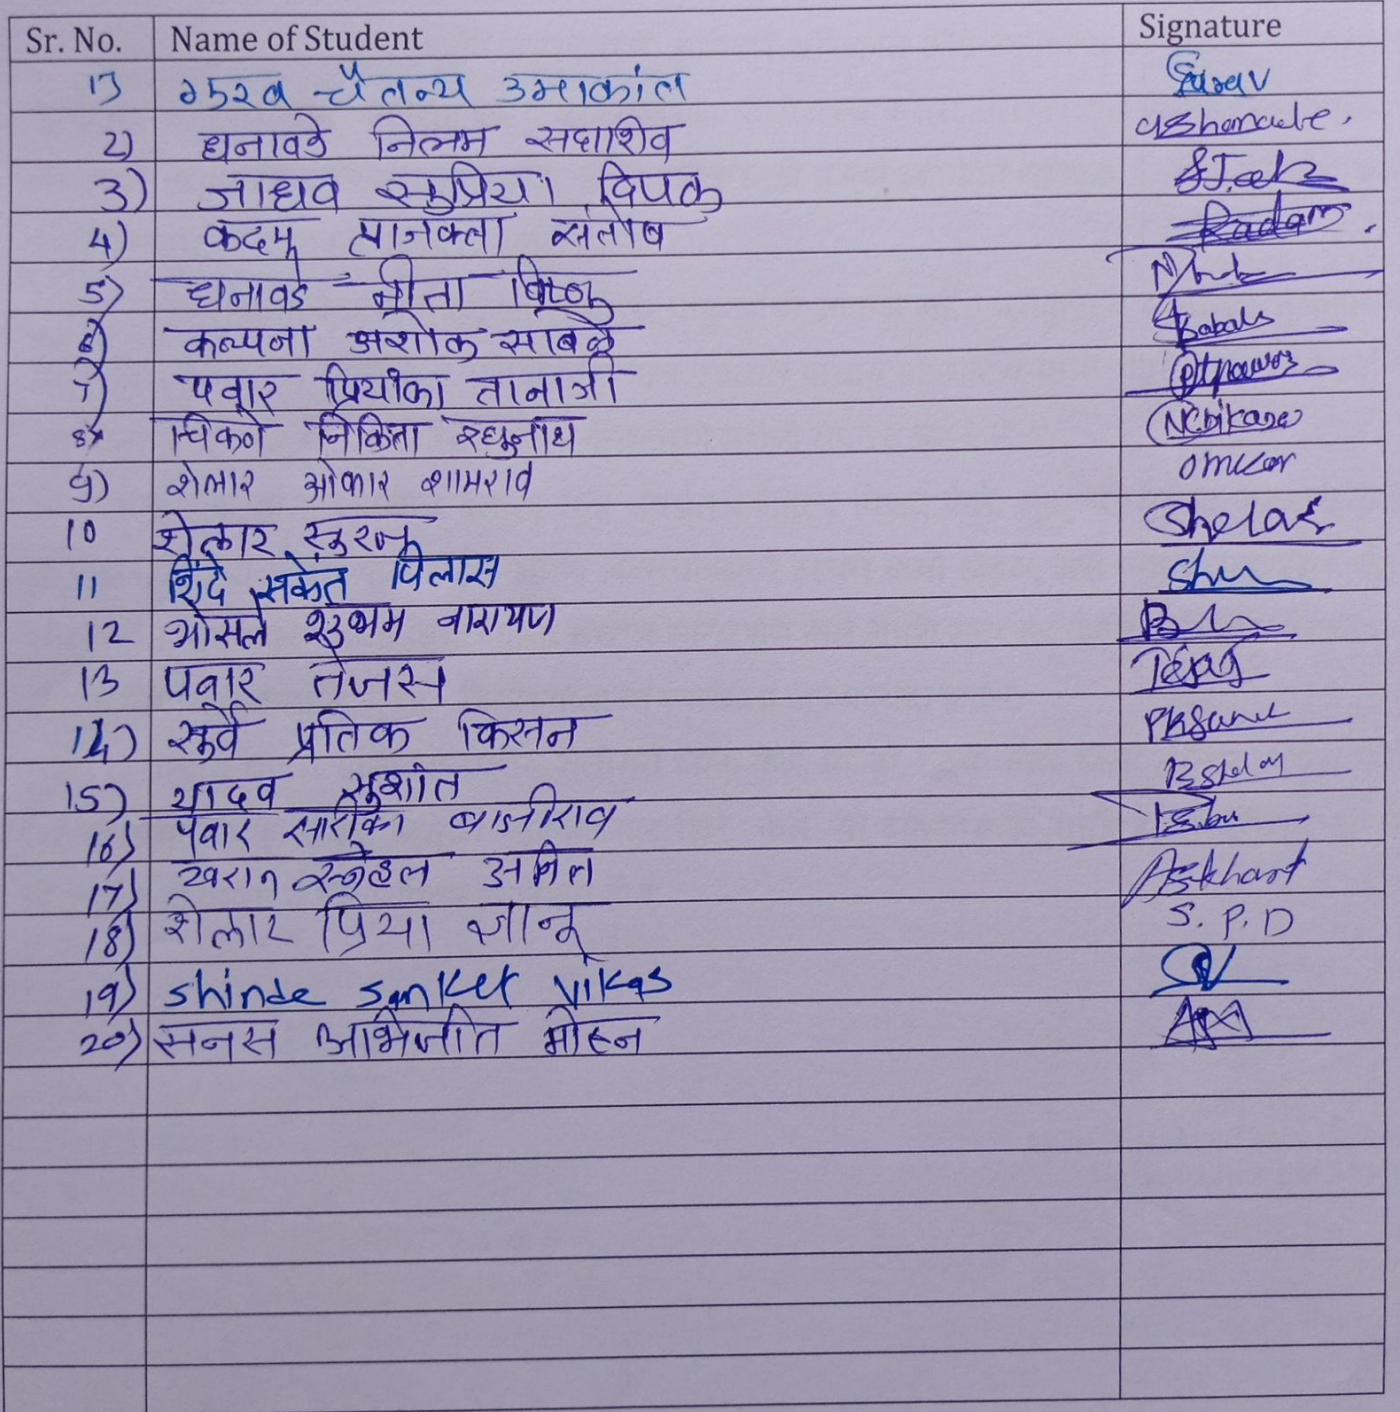 Sr. No. Name of Student Signature
1) गुरव चैतन्य उमाकांत Gurav
2) घनावडे निलम सदाशिव
3) जाधव सुप्रिया दिपक
4) कदम प्राजक्ता संतोष Kadam
5) घनावडे नीता विष्णू
6) कल्पना अशोक साबळे Sabale
7) पवार प्रियांका तानाजी
8) चिकणे निकिता रघुनाथ NChikane
9) शेलार ओंकार शामराव omkar
10 शेलार सुरज Shelar
11 शिंदे संकेत विलास
12 भोसले शुभम नारायण
13 पवार तेजस Tejas
14) सुर्वे प्रतिक किसन
15) यादव सुशांत
16) पवार सारीका बाजीराव
17) खरात स्नेहल अनिल
18) शेलार प्रिया जानू S. P. D
19) shinde sanket vikas
20) सनस अभिजीत मोहन